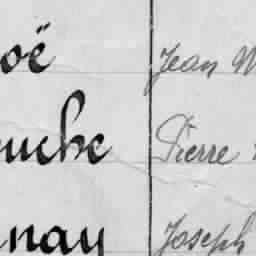 oë Jean M
uche Pierre
nay Joseph